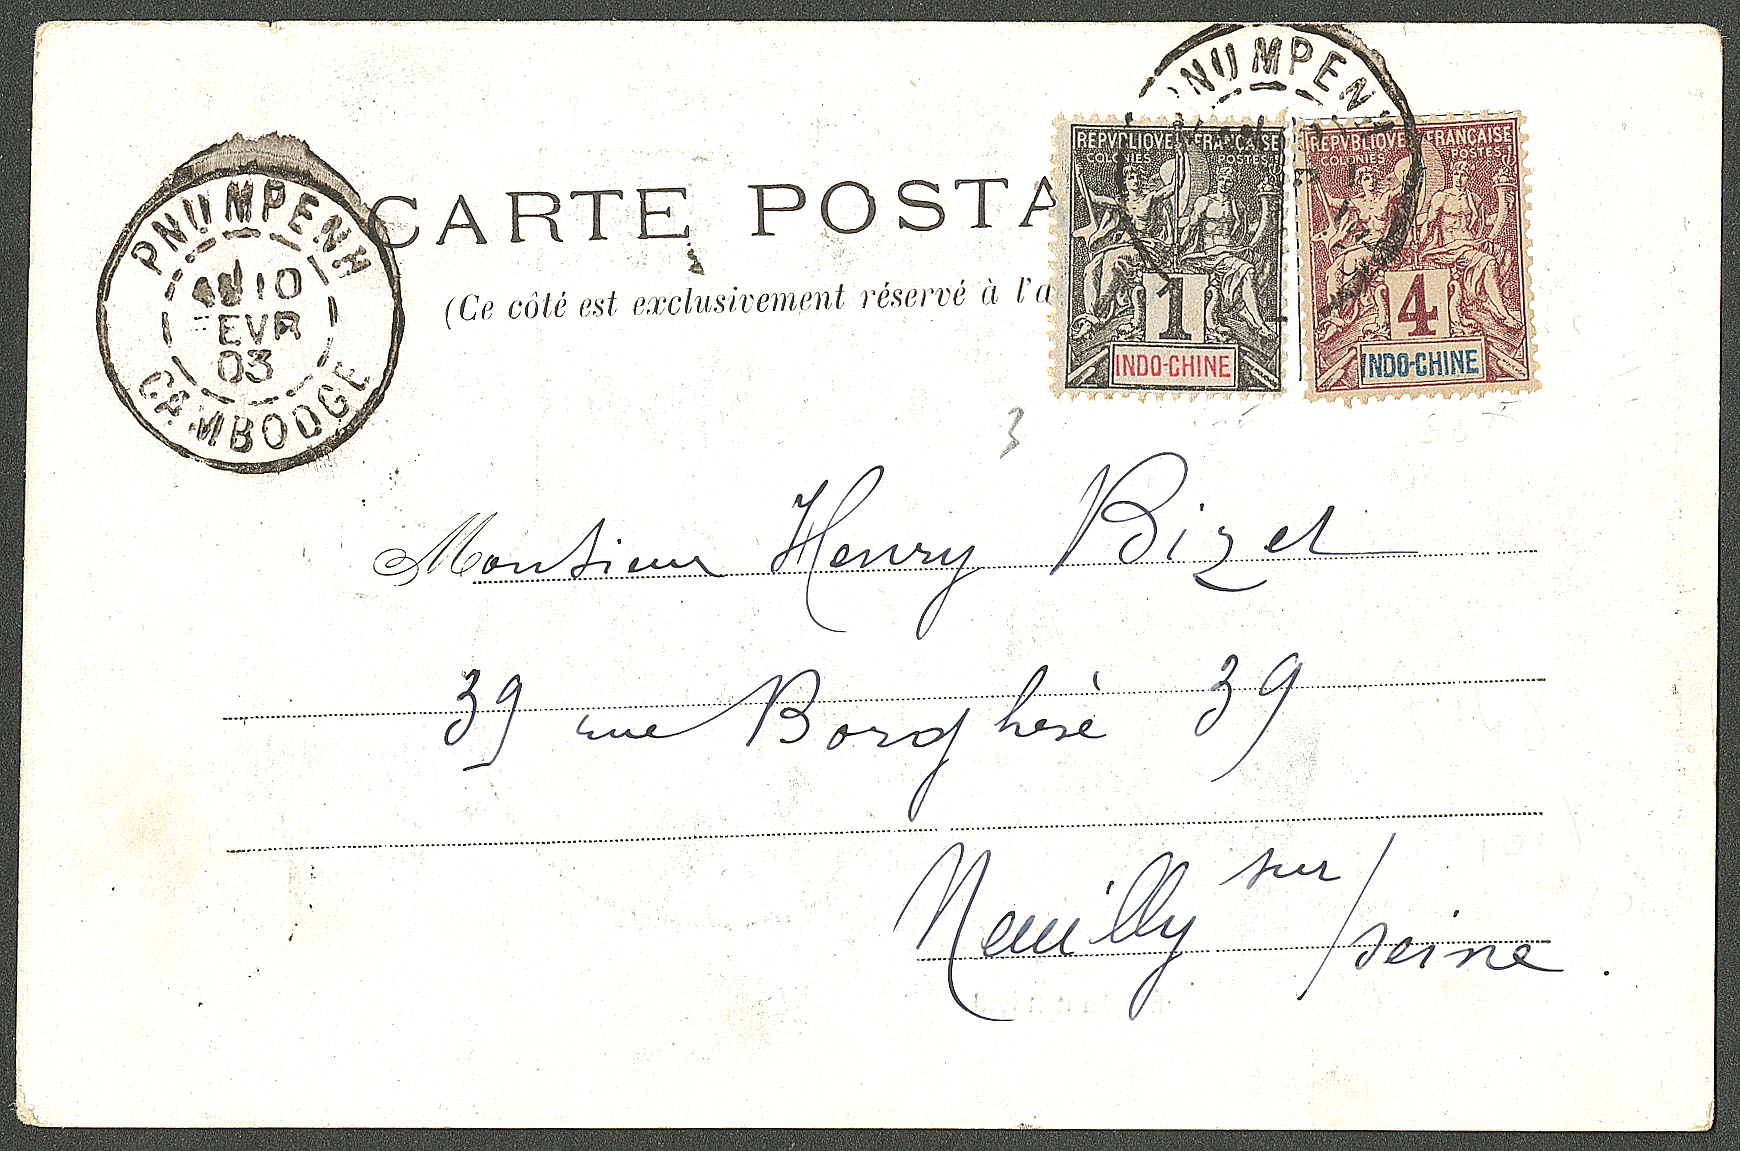 PNUMPENH
10
EVR
03
CAMBODGE
PNUMPENH
CARTE POSTA
(Ce côté est exclusivement réservé à l'a
REPVBLIQVE FRANÇAISE
COLONIES POSTES
1
INDO-CHINE
REPVBLIQVE FRANÇAISE
COLONIES POSTES
4
INDO-CHINE
3
Monsieur Henry Bizet
39 rue Borghèse 39
Neuilly sur / seine.